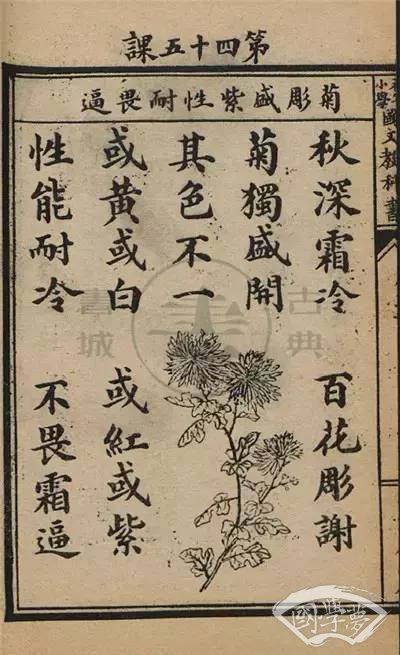 第四十五課
菊彫盛紫性耐畏逼
秋深霜冷 百花彫謝
菊獨盛開
其色不一
或黃或白 或紅或紫
性能耐冷 不畏霜逼
小學國文教科書
古典書城
國學夢